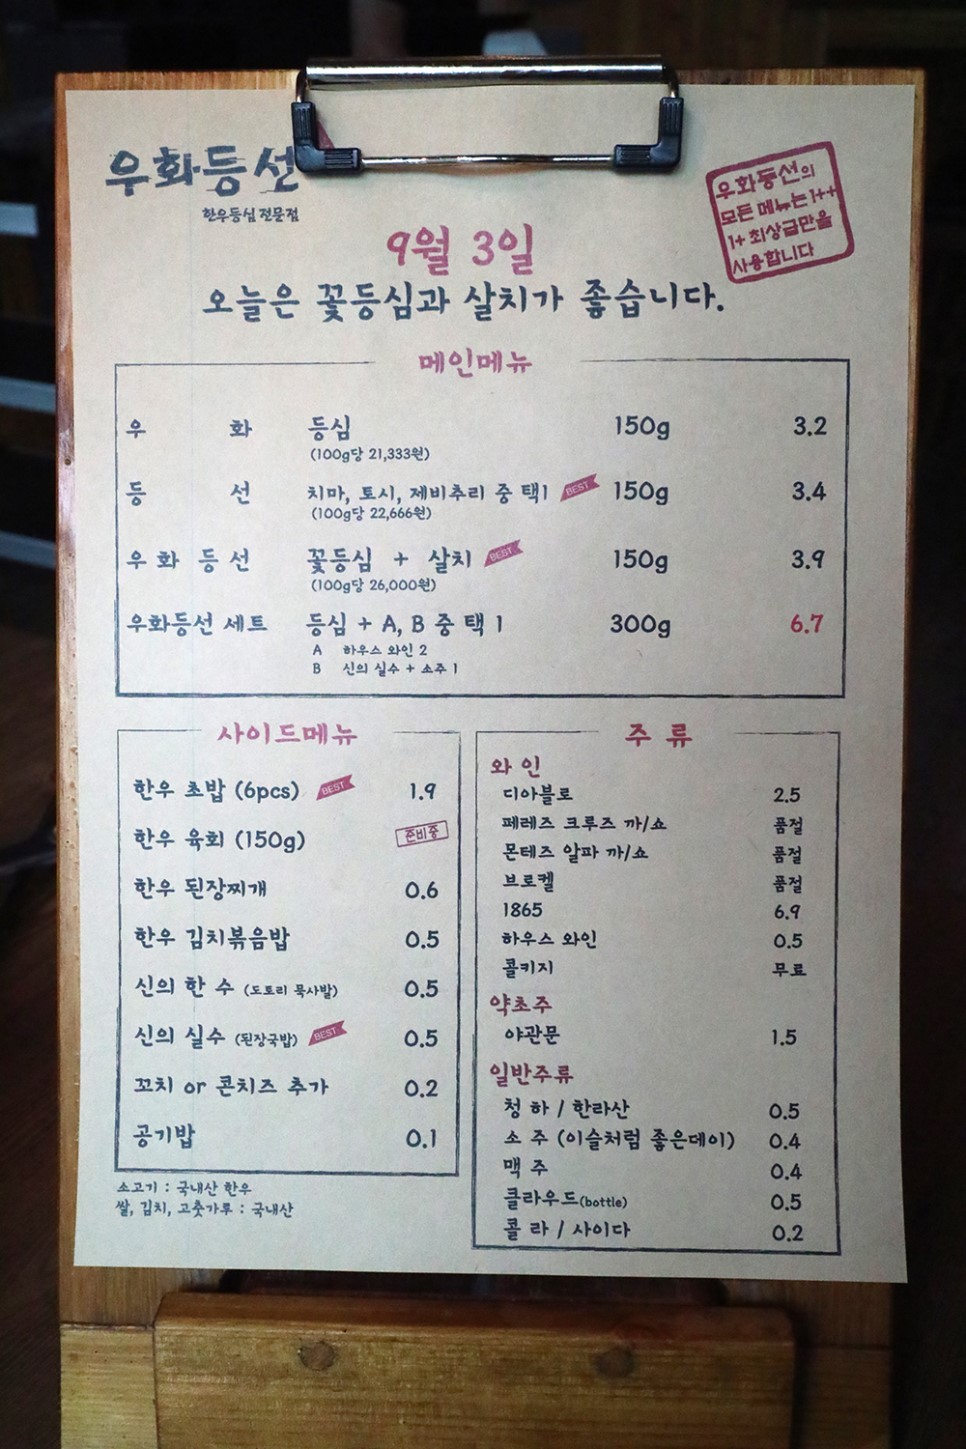 우화등선
한우등심 전문점
우화등선의
모든 메뉴는 1++
1+ 최상급만을
사용합니다
9월 3일
오늘은 꽃등심과 살치가 좋습니다.
메인메뉴
우 화 등심 150g 3.2
(100g당 21,333원)
등 선 치마, 토시, 제비추리 중 택1 BEST 150g 3.4
(100g당 22,666원)
우 화 등 선 꽃등심 + 살치 BEST 150g 3.9
(100g당 26,000원)
우화등선 세트 등심 + A, B 중 택 1 300g 6.7
A 하우스 와인 2
B 신의 실수 + 소주 1
사이드메뉴
한우 초밥 (6pcs) BEST 1.9
한우 육회 (150g) 준비중
한우 된장찌개 0.6
한우 김치볶음밥 0.5
신의 한 수 (도토리 묵사발) 0.5
신의 실수 (된장국밥) BEST 0.5
꼬치 or 콘치즈 추가 0.2
공기밥 0.1
소고기 : 국내산 한우
쌀, 김치, 고춧가루 : 국내산
주 류
와 인
디아블로 2.5
페레즈 크루즈 까/쇼 품절
몬테즈 알파 까/쇼 품절
브로켈 품절
1865 6.9
하우스 와인 0.5
콜키지 무료
약초주
야관문 1.5
일반주류
청 하 / 한라산 0.5
소 주 (이슬처럼 좋은데이) 0.4
맥 주 0.4
클라우드(bottle) 0.5
콜 라 / 사이다 0.2